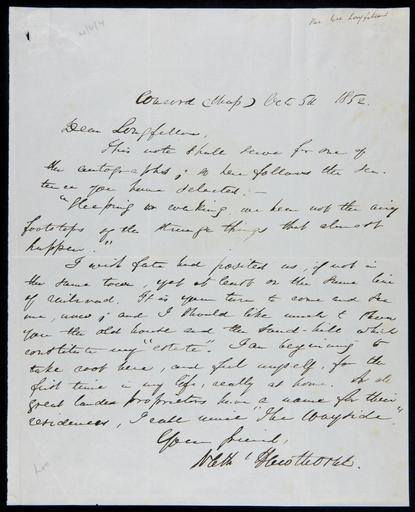 Concord (Mass) Oct 5th 1852.
Dear Longfellow,
This note shall serve for one of
the autographs; & here follows the sen-
tence you have selected:—
"Sleeping or waking, we hear not the airy
footsteps of the strange things that almost
happen."
I wish fate had posited us, if not in
the same town, yet at least on the same line
of railroad. It is your turn to come and see
me, now; and I should like much to show
you the old house and the sand-hill which
constitute my "estate". I am beginning to
take root here, and feel myself, for the
first time in my life, really at home. As all
great landed proprietors have a name for their
residences, I call mine "The Wayside".
Your friend,
Nath' Hawthorne.